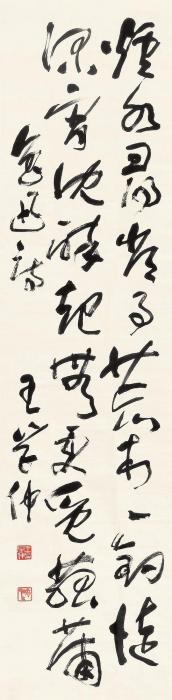 煙水尋常事荒村一釣徒
深宵沈醉起無處覓菰蒲
魯迅詩
王學仲